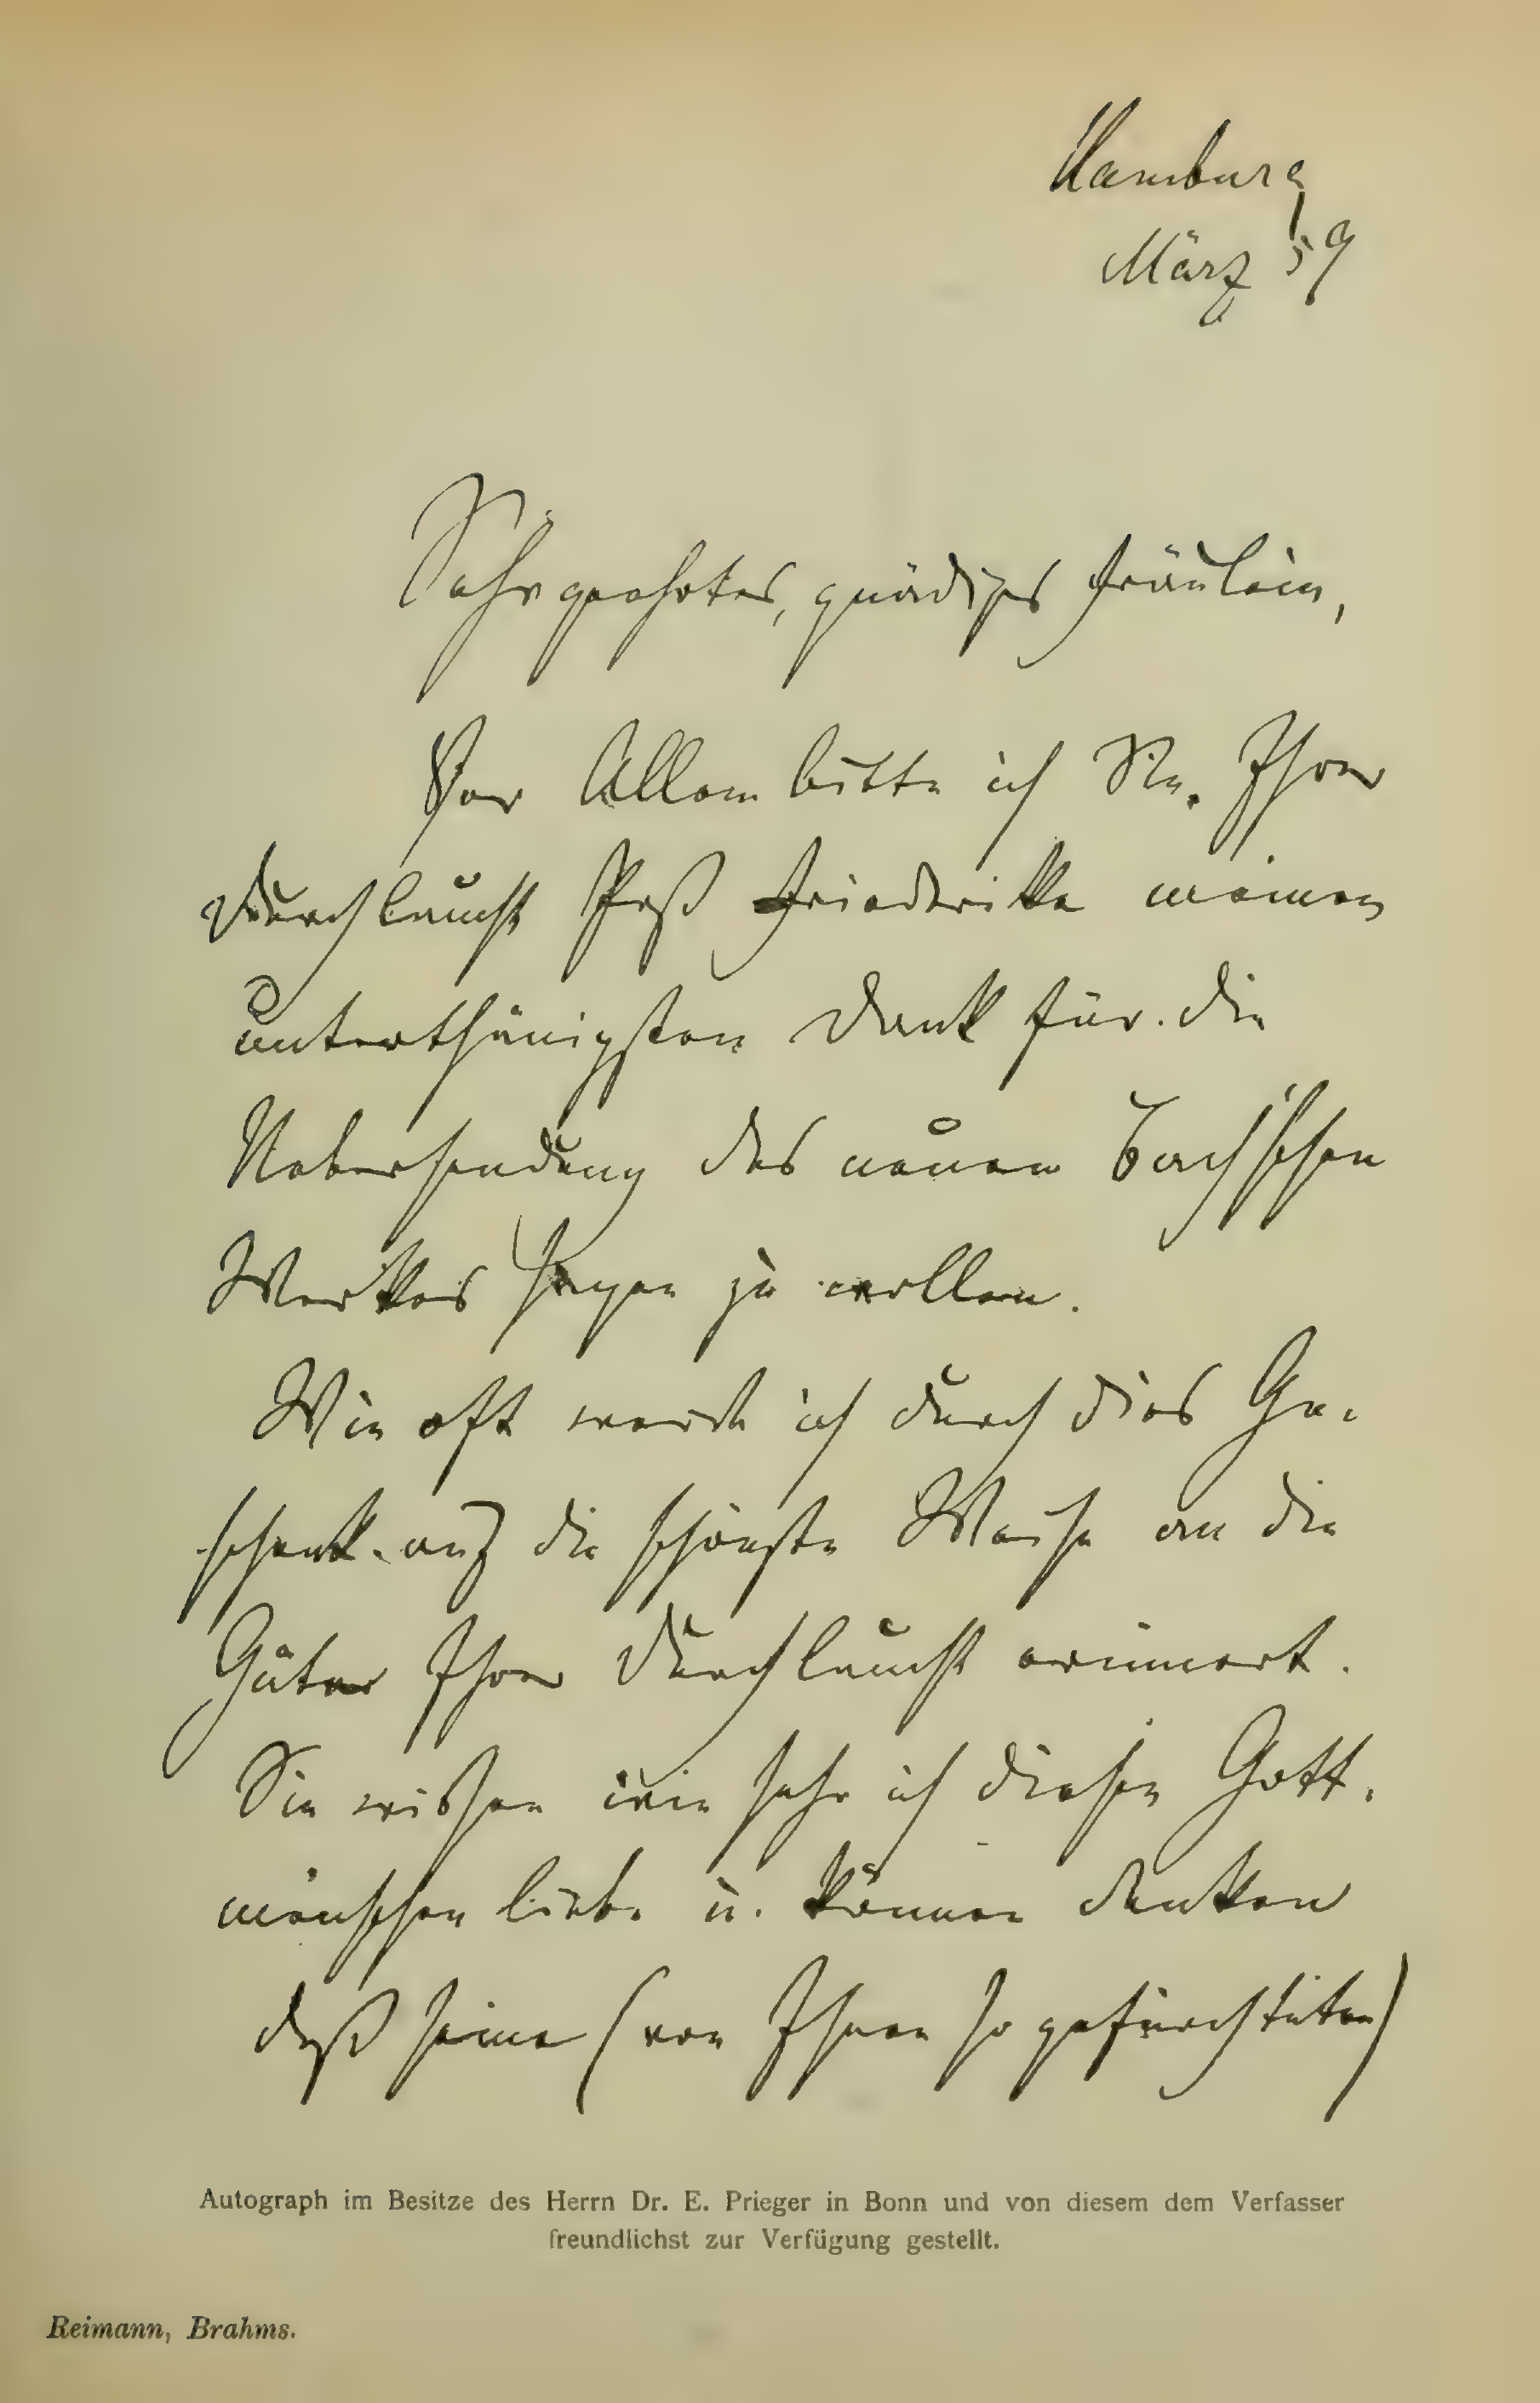 Hamburg
März 59
Sehr geehrtes, gnädiges Fräulein,
Vor Allem bitte ich Sie, Ihrer
Durchlaucht Preß Friederikke meinen
unterthänigsten Dank für die
Uebersendung des neuen Bach'schen
Werkes sagen zu wollen.
Wie oft werde ich durch dies Ge-
schenk auf die schönste Weise an die
Güte Ihrer Durchlaucht erinnert.
Sie wissen wie sehr ich diesen Gott-
menschen liebe u. können denken
daß seine (von Ihnen so gefürchteten)
Autograph im Besitze des Herrn Dr. E. Prieger in Bonn und von diesem dem Verfasser
freundlichst zur Verfügung gestellt.
Reimann, Brahms.